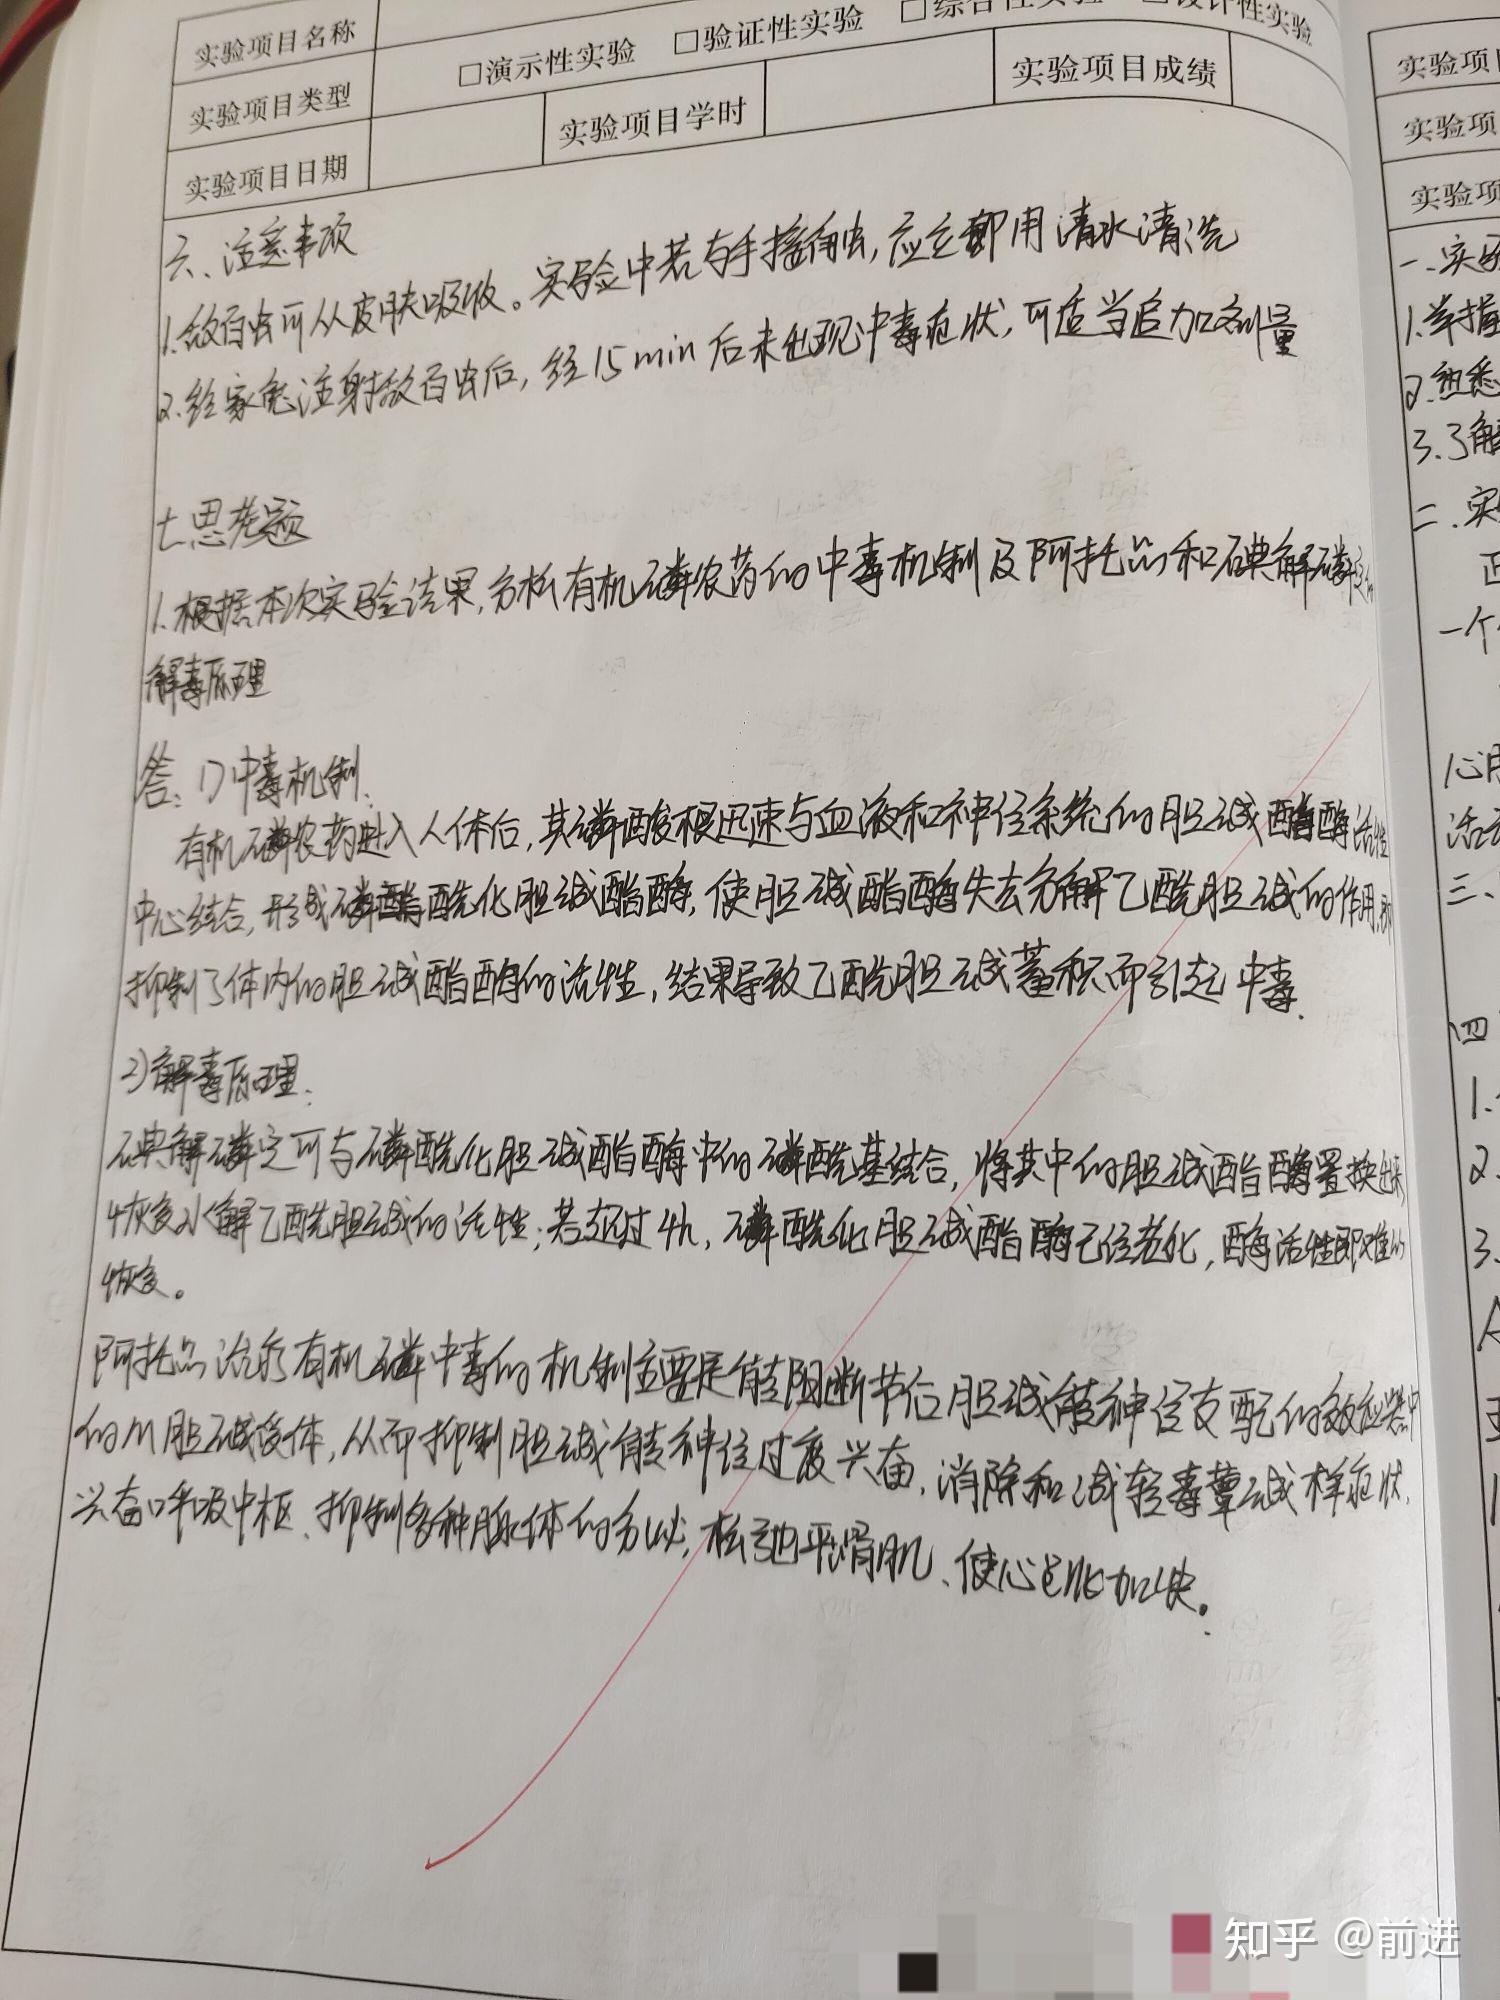 实验项目名称
实验项目类型 □演示性实验 □验证性实验 □综合性实验 □设计性实验
实验项目日期 实验项目学时 实验项目成绩
六、注意事项
1.敌百虫可从皮肤吸收。实验中若与手接触,应立即用清水清洗
2.给家兔注射敌百虫后,经15min后未出现中毒症状,可适当追加剂量
七.思考题
1.根据本次实验结果,分析有机磷农药的中毒机制及阿托品和碘解磷定的
解毒原理
答:1)中毒机制:
有机磷农药进入人体后,其磷酸根迅速与血液和神经系统的胆碱酯酶活性
中心结合,形成磷酰化胆碱酯酶,使胆碱酯酶失去分解乙酰胆碱的作用,即
抑制了体内的胆碱酯酶的活性,结果导致乙酰胆碱蓄积而引起中毒.
2)解毒原理:
碘解磷定可与磷酰化胆碱酯酶中的磷酰基结合,将其中的胆碱酯酶置换出来,
恢复水解乙酰胆碱的活性;若超过4h,磷酰化胆碱酯酶已经老化,酶活性即难以
恢复。
阿托品治疗有机磷中毒的机制主要是能阻断节后胆碱能神经支配的效应器中
的M胆碱受体,从而抑制胆碱能神经过度兴奋,消除和减轻毒蕈碱样症状,
兴奋呼吸中枢、抑制各种腺体的分泌,松弛平滑肌、使心率加快。
实验项目
实验项
实验项
一.实验
1.掌握
2.熟悉
3.了解
二.实
一个
心肌
活动
三、
四
1.
2.
3.
知乎 @前进